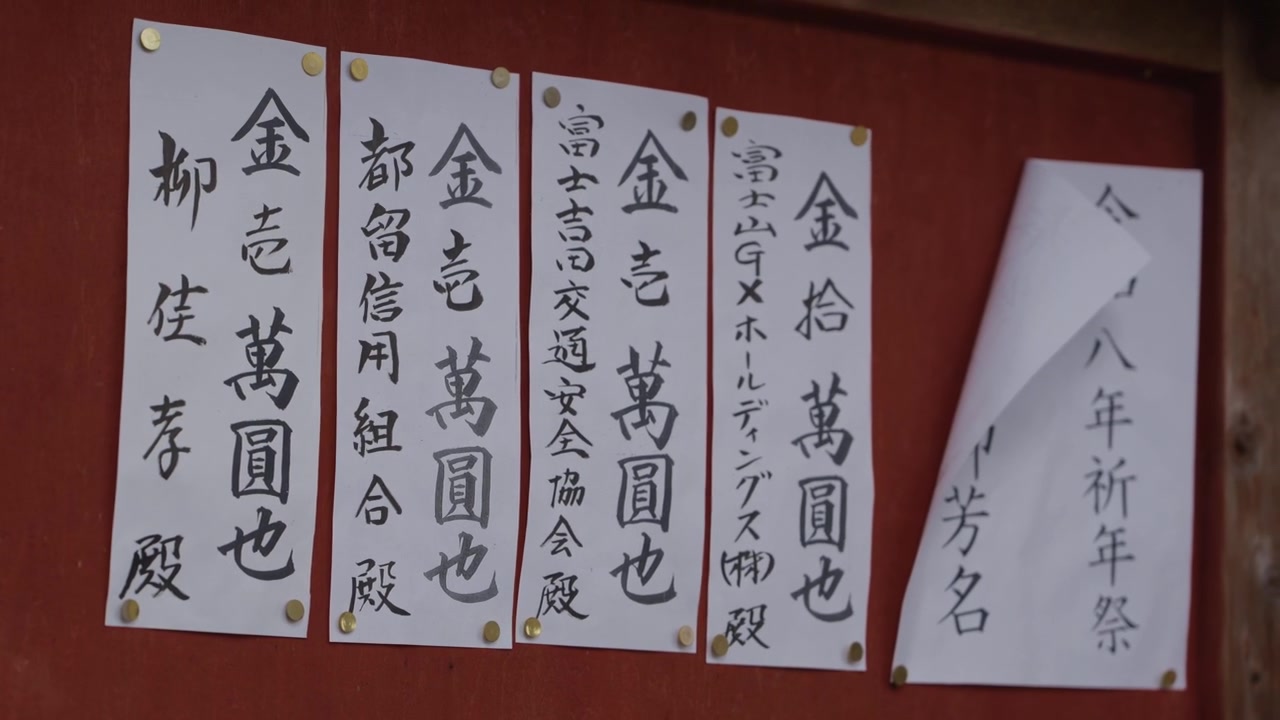 八年祈年祭
芳名
金拾萬圓也
富士山GXホールディングス(株)殿
金壱萬圓也
富士吉田交通安全協会殿
金壱萬圓也
都留信用組合殿
金壱萬圓也
柳佳孝殿